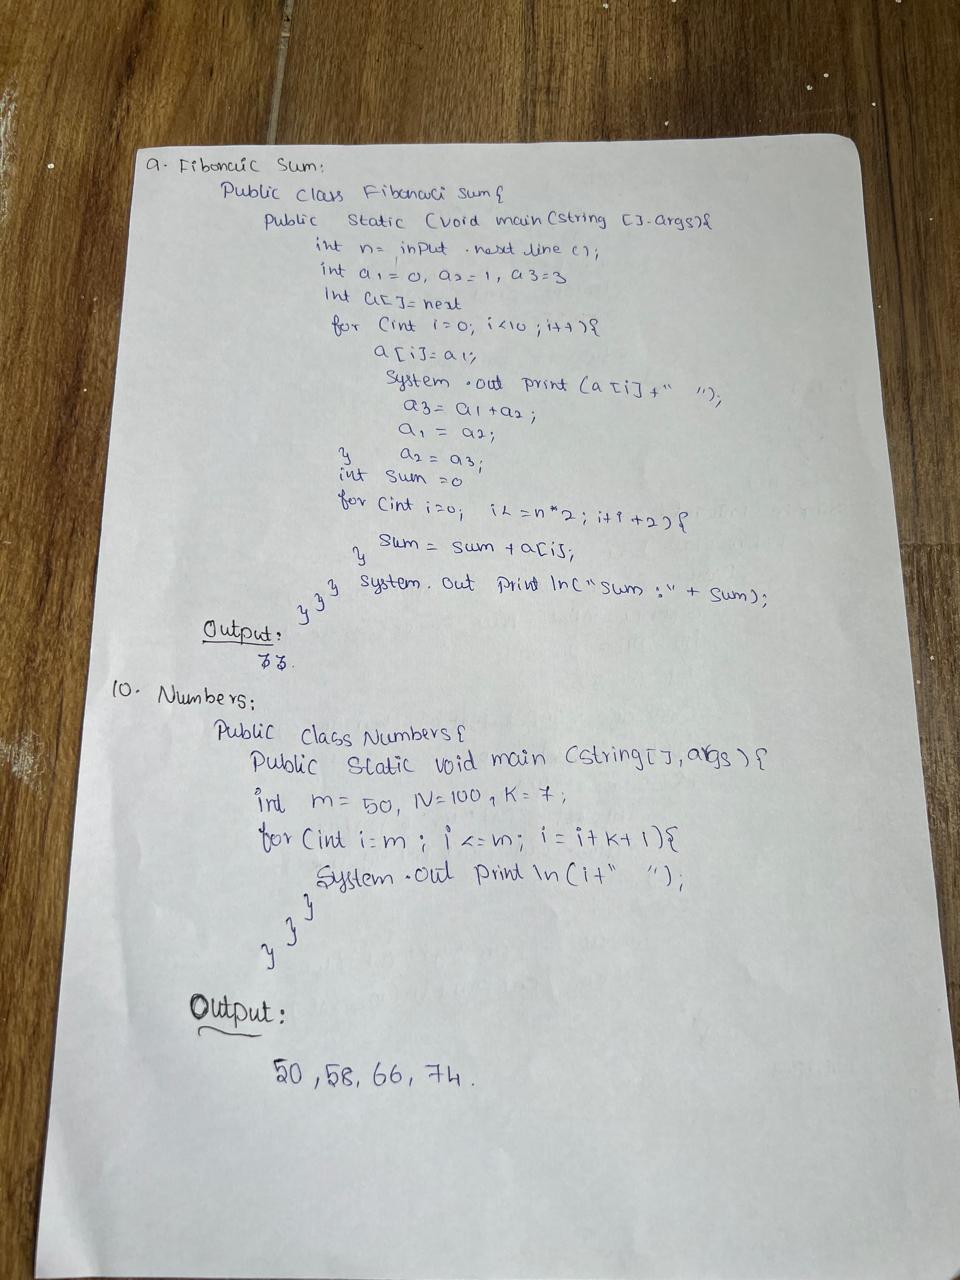 9. Fiboncuic Sum:
Public class Fibonauci sum{
Public Static (void main (string [].args){
int n= input .next line ();
int a1=0, a2=1, a3=3
Int a[]= next
for (int i=0; i<10; i++){
a[i]=a1;
System .out print (a[i]+" ");
a3= a1+a2;
a1 = a2;
} a2= a3;
int sum =0
for (int i=0; i<=n*2; i+i+2){
sum = sum +a[i];
}
System. out print ln("sum :" + sum);
} } }
Output:
33.
10. Numbers:
Public Class Numbers{
Public Static void main (string[], args){
int m= 50, N=100, K=7;
for (int i=m; i<=m; i=i+k+1){
System .out print ln(i+" ");
}
}
}
Output:
50, 58, 66, 74.